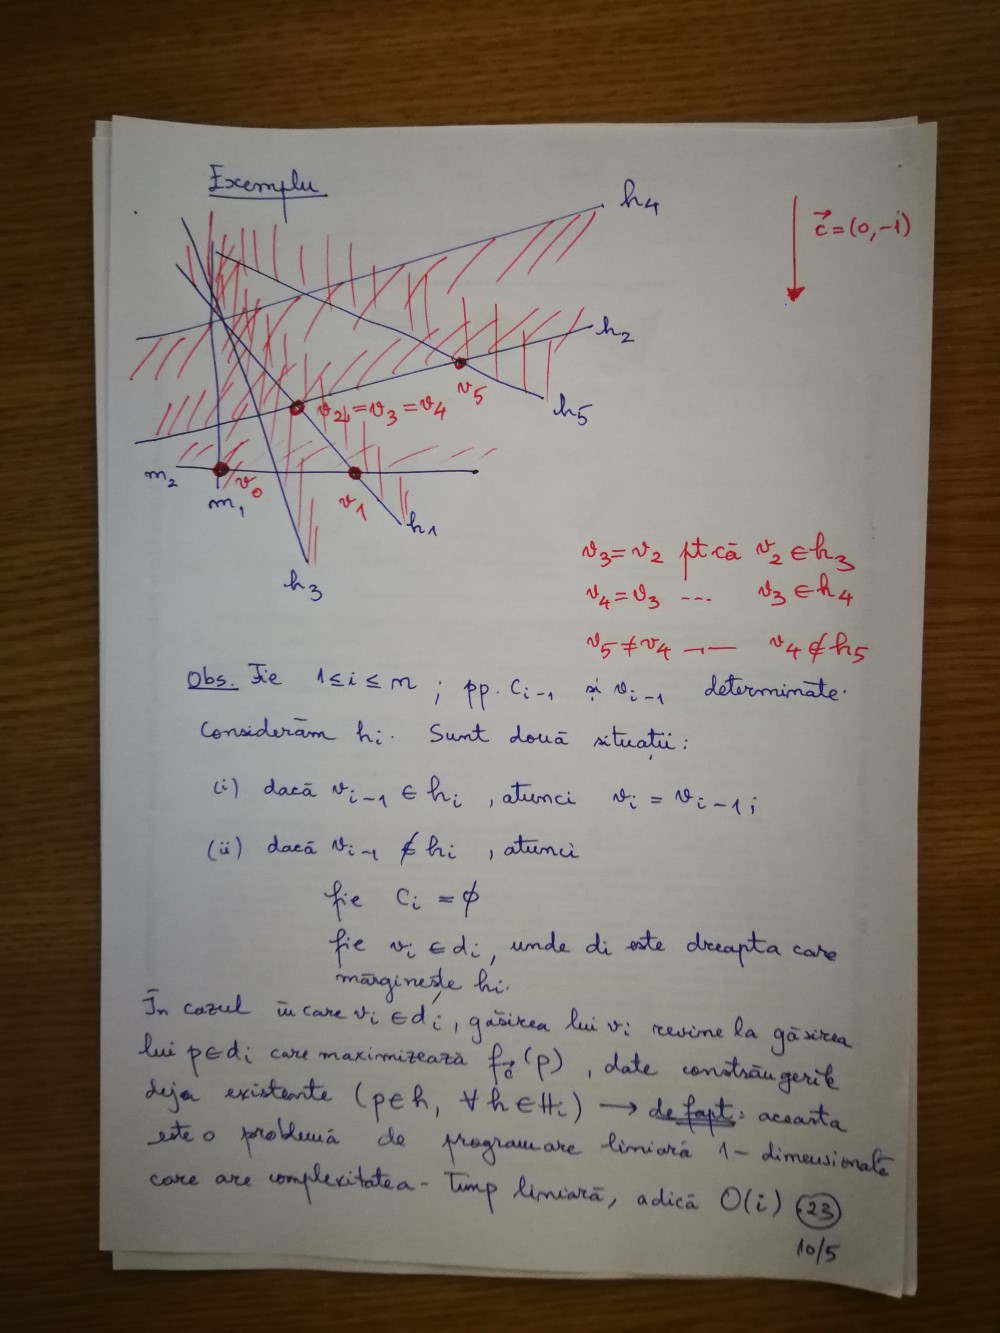 Exemplu
h4
c⃗ = (0,-1)
h2
v5
h5
v2 = v3 = v4
m2
v0
m1
v1
h1
h3
v3 = v2 pt că v2 ∈ h3
v4 = v3 --- v3 ∈ h4
v5 ≠ v4 --- v4 ∉ h5
Obs. Fie 1 ≤ i ≤ n ; pp. Ci-1 și vi-1 determinate.
Considerăm hi. Sunt două situații:
(i) dacă vi-1 ∈ hi , atunci vi = vi-1 ;
(ii) dacă vi-1 ∉ hi , atunci
fie Ci = ϕ
fie vi ∈ di, unde di este dreapta care
mărginește hi.
În cazul în care vi ∈ di, găsirea lui vi revine la găsirea
lui p ∈ di care maximizează fc⃗(p) , date constrângerile
deja existente (p ∈ h, ∀ h ∈ Hi) → de fapt: aceasta
este o problemă de programare liniară 1-dimensională
care are complexitatea-timp liniară, adică O(i)
23
10/5